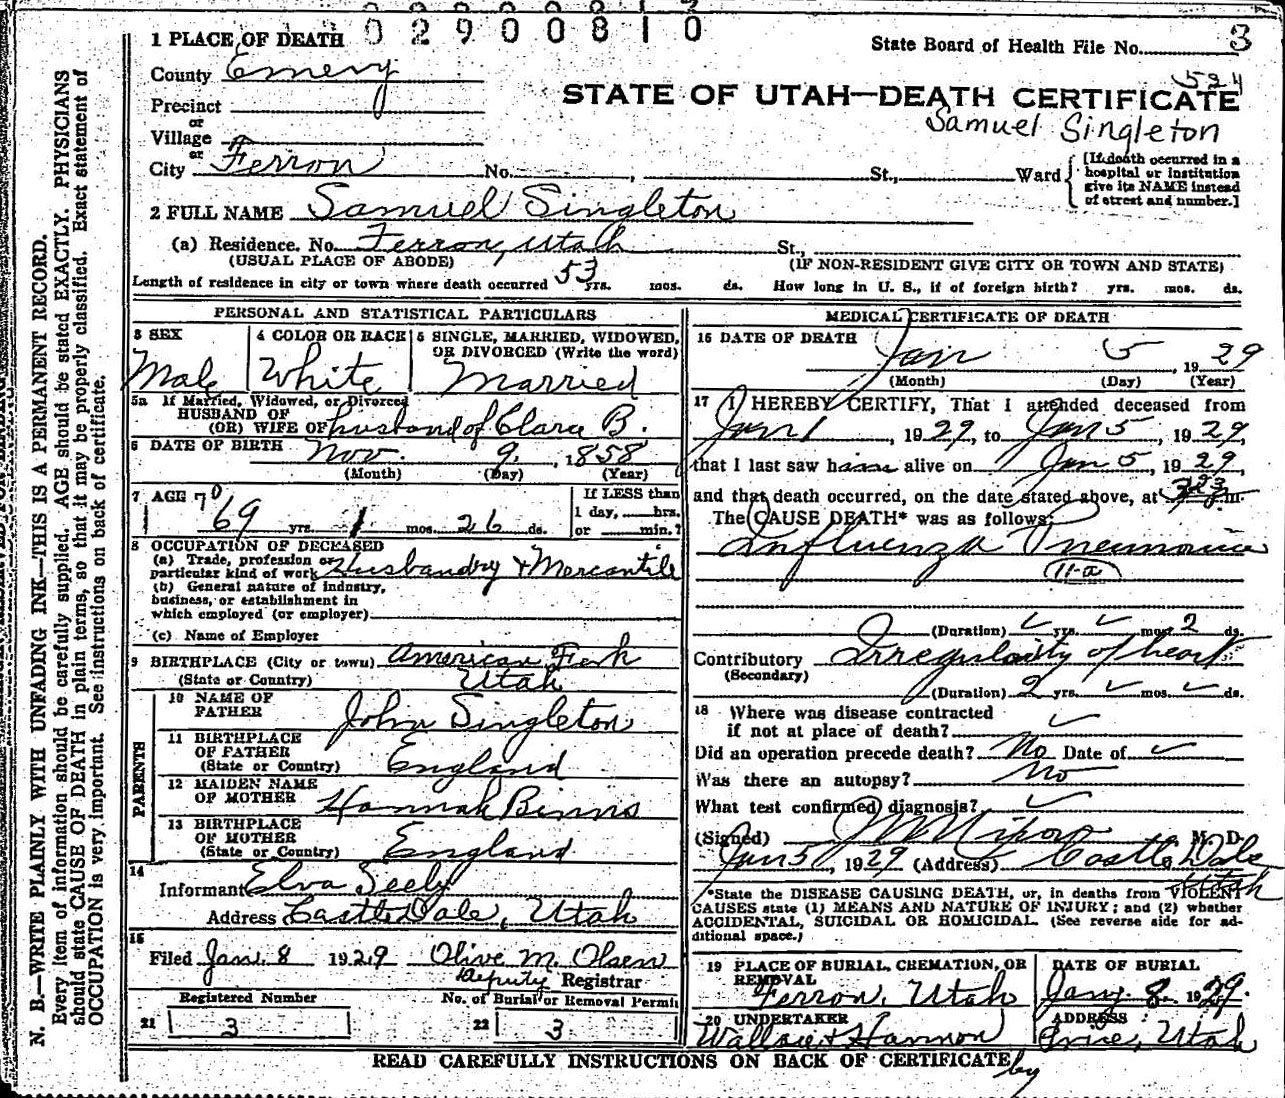 02900810
1 PLACE OF DEATH
State Board of Health File No. 3
County Emery
524
STATE OF UTAH—DEATH CERTIFICATE
Precinct
Samuel Singleton
or
Village
or
City Ferron No. , St., Ward
[If death occurred in a
hospital or institution
give its NAME instead
of street and number.]
2 FULL NAME Samuel Singleton
(a) Residence. No. Ferron, Utah St.,
(USUAL PLACE OF ABODE) (IF NON-RESIDENT GIVE CITY OR TOWN AND STATE)
Length of residence in city or town where death occurred 53 yrs. mos. ds. How long in U. S., if of foreign birth? yrs. mos. ds.
PERSONAL AND STATISTICAL PARTICULARS
3 SEX
Male
4 COLOR OR RACE
White
5 SINGLE, MARRIED, WIDOWED,
OR DIVORCED (Write the word)
Married
5a If Married, Widowed, or Divorced
HUSBAND OF
(OR) WIFE OF husband of Clara B.
6 DATE OF BIRTH Nov. 9, 1858
(Month) (Day) (Year)
7 AGE 70
69 yrs. 1 mos. 26 ds.
If LESS than
1 day, hrs.
or min.?
8 OCCUPATION OF DECEASED
(a) Trade, profession or
particular kind of work Husbandry & Mercantile
(b) General nature of industry,
business, or establishment in
which employed (or employer)
(c) Name of Employer
9 BIRTHPLACE (City or town) American Fork
(State or Country) Utah
PARENTS
10 NAME OF
FATHER John Singleton
11 BIRTHPLACE
OF FATHER
(State or Country) England
12 MAIDEN NAME
OF MOTHER Hannah Binns
13 BIRTHPLACE
OF MOTHER
(State or Country) England
14
Informant Elva Seely
Address Castle Dale, Utah
15
Filed Jan. 8 1929 Olive M. Olsen
Deputy Registrar
Registered Number
21 3
No. of Burial or Removal Permit
22 3
MEDICAL CERTIFICATE OF DEATH
16 DATE OF DEATH
Jan 5, 1929
(Month) (Day) (Year)
17 I HEREBY CERTIFY, That I attended deceased from
Jan 1, 1929, to Jan 5, 1929,
that I last saw him alive on Jan 5, 1929,
and that death occurred, on the date stated above, at m.
The CAUSE DEATH* was as follows:
Influenza Pneumonia
11-a
(Duration) yrs. mos. 2 ds.
Contributory Irregularity of heart
(Secondary)
(Duration) 2 yrs. mos. ds.
18 Where was disease contracted
if not at place of death?
Did an operation precede death? No Date of
Was there an autopsy? No
What test confirmed diagnosis?
(Signed) M. D.
Jan 5, 1929 (Address) Castle Dale
Utah
*State the DISEASE CAUSING DEATH, or, in deaths from VIOLENT
CAUSES state (1) MEANS AND NATURE OF INJURY; and (2) whether
ACCIDENTAL, SUICIDAL OR HOMICIDAL. (See reverse side for ad-
ditional space.)
19 PLACE OF BURIAL, CREMATION, OR
REMOVAL
Ferron, Utah
DATE OF BURIAL
Jany. 8 1929.
20 UNDERTAKER
Wallace & Harmon
ADDRESS
Price, Utah
READ CAREFULLY INSTRUCTIONS ON BACK OF CERTIFICATE
by
N. B.—WRITE PLAINLY WITH UNFADING INK—THIS IS A PERMANENT RECORD.
Every item of information should be carefully supplied. AGE should be stated EXACTLY. PHYSICIANS
should state CAUSE OF DEATH in plain terms, so that it may be properly classified. Exact statement of
OCCUPATION is very important. See instructions on back of certificate.